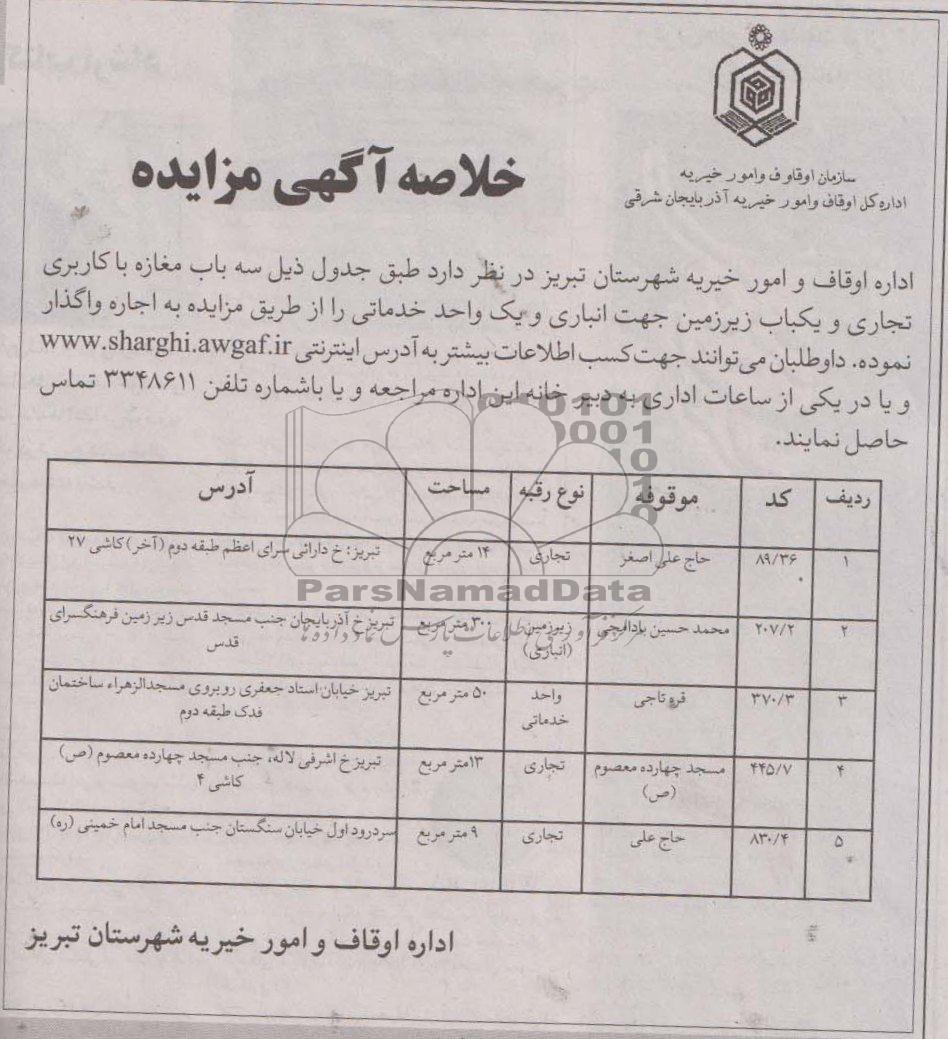 سازمان اوقاف وامور خیریه
اداره کل اوقاف وامور خیریه آذربایجان شرقی
خلاصه آگهی مزایده
اداره اوقاف و امور خیریه شهرستان تبریز در نظر دارد طبق جدول ذیل سه باب مغازه با کاربری
تجاری و یکباب زیرزمین جهت انباری و یک واحد خدماتی را از طریق مزایده به اجاره واگذار
نموده. داوطلبان می‌توانند جهت کسب اطلاعات بیشتر به آدرس اینترنتی www.sharghi.awgaf.ir
و یا در یکی از ساعات اداری به دبیر خانه این اداره مراجعه و یا باشماره تلفن ۳۳۴۸۶۱۱ تماس
حاصل نمایند.
ردیف کد موقوفه نوع رقبه مساحت آدرس
۱ ۸۹/۳۶ حاج علی اصغر تجاری ۱۴ متر مربع تبریز: خ دارائی سرای اعظم طبقه دوم (آخر) کاشی ۲۷
۲ ۲۰۷/۲ محمد حسین بادامچی زیرزمین ۳۰۰ متر مربع تبریز خ آذربایجان جنب مسجد قدس زیر زمین فرهنگسرای
(انباری) قدس
۳ ۳۷۰/۳ قره تاجی واحد ۵۰ متر مربع تبریز خیابان استاد جعفری روبروی مسجدالزهراء ساختمان
خدماتی فدک طبقه دوم
۴ ۴۴۵/۷ مسجد چهارده معصوم تجاری ۱۳متر مربع تبریز خ اشرفی لاله، جنب مسجد چهارده معصوم (ص)
(ص) کاشی ۴
۵ ۸۳۰/۴ حاج علی تجاری ۹ متر مربع سردرود اول خیابان سنگستان جنب مسجد امام خمینی (ره)
اداره اوقاف و امور خیریه شهرستان تبریز
ParsNamadData